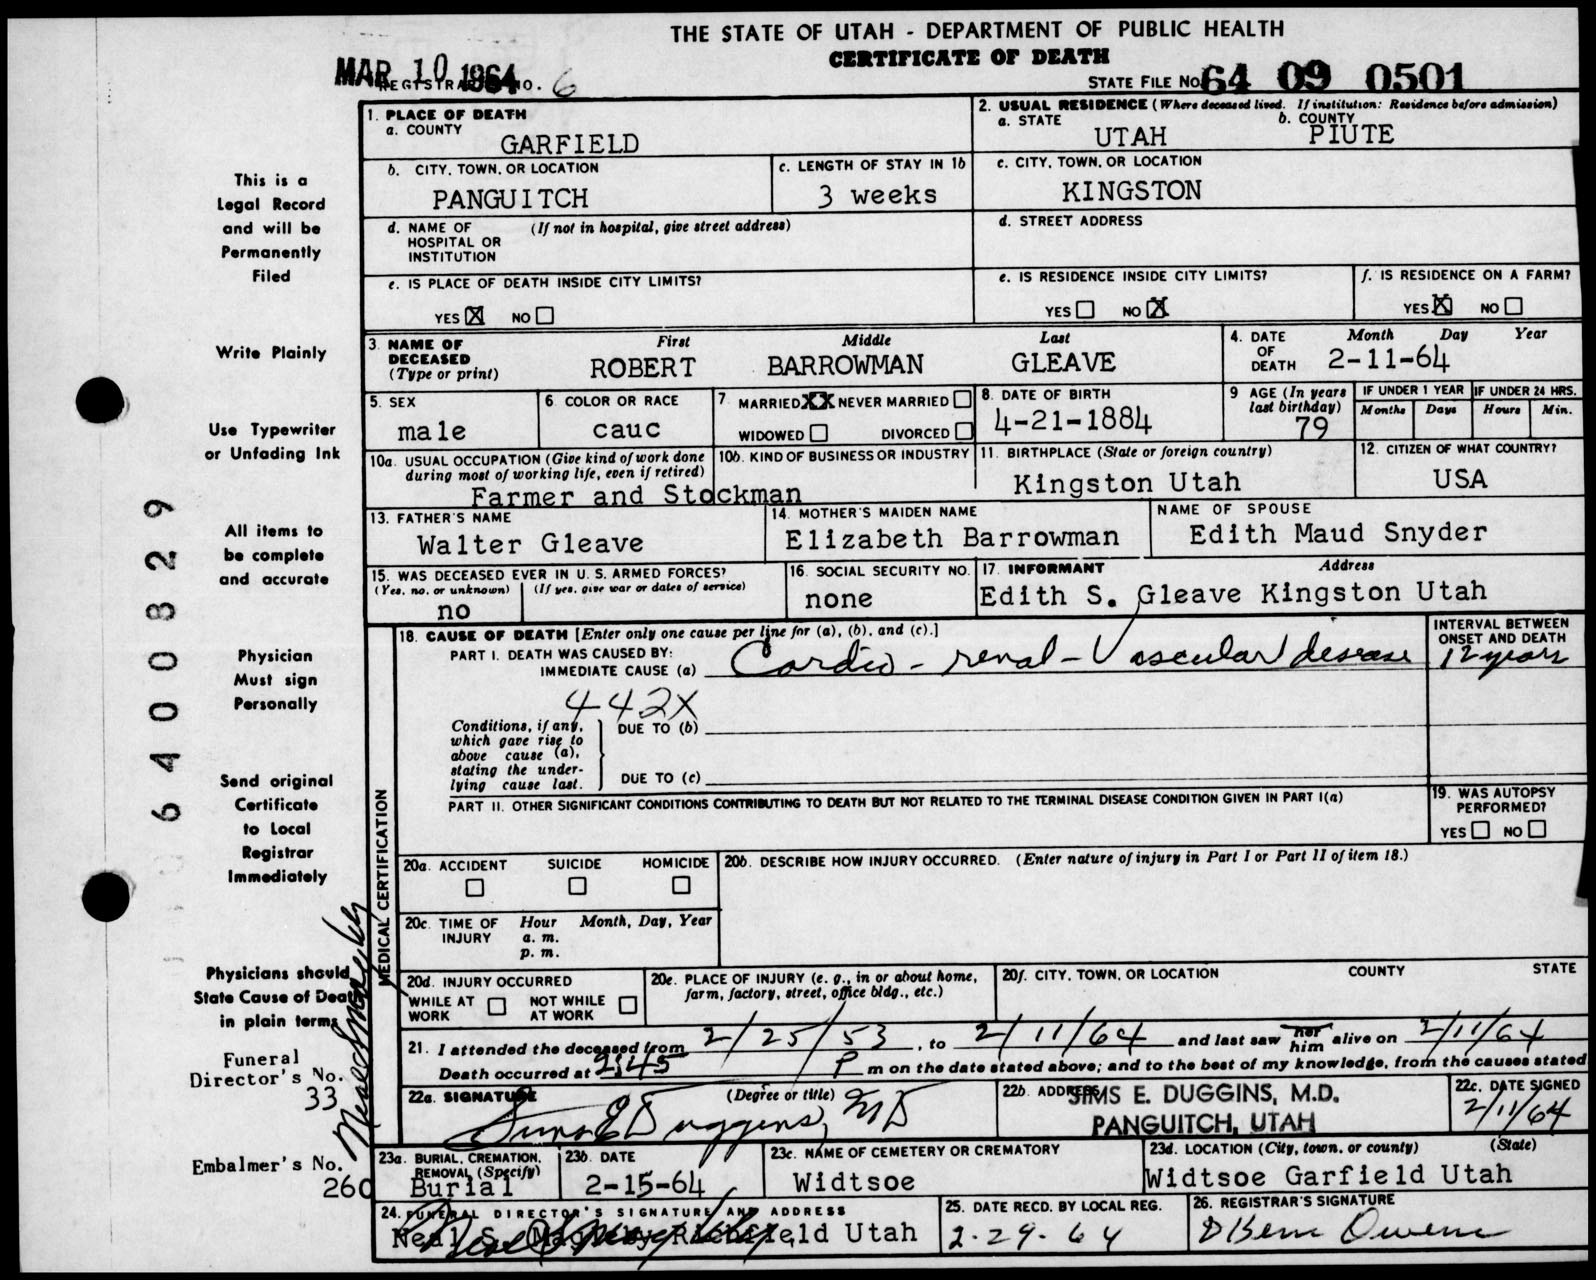 THE STATE OF UTAH - DEPARTMENT OF PUBLIC HEALTH
CERTIFICATE OF DEATH
MAR 10 1964
REGISTRAR'S NO. 6
STATE FILE NO. 64 09 0501
This is a
Legal Record
and will be
Permanently
Filed
Write Plainly
Use Typewriter
or Unfading Ink
All items to
be complete
and accurate
Physician
Must sign
Personally
Send original
Certificate
to Local
Registrar
Immediately
Physicians should
State Cause of Death
in plain terms
Funeral
Director's No.
33
Embalmer's No.
260
6400829
1. PLACE OF DEATH
a. COUNTY
GARFIELD
2. USUAL RESIDENCE (Where deceased lived. If institution: Residence before admission)
a. STATE b. COUNTY
UTAH PIUTE
b. CITY, TOWN, OR LOCATION
PANGUITCH
c. LENGTH OF STAY IN 1b
3 weeks
c. CITY, TOWN, OR LOCATION
KINGSTON
d. NAME OF (If not in hospital, give street address)
HOSPITAL OR
INSTITUTION
d. STREET ADDRESS
e. IS PLACE OF DEATH INSIDE CITY LIMITS?
YES X NO
e. IS RESIDENCE INSIDE CITY LIMITS?
YES NO X
f. IS RESIDENCE ON A FARM?
YES X NO
3. NAME OF First Middle Last
DECEASED
(Type or print)
ROBERT BARROWMAN GLEAVE
4. DATE Month Day Year
OF
DEATH 2-11-64
5. SEX
male
6. COLOR OR RACE
cauc
7. MARRIED XX NEVER MARRIED
WIDOWED DIVORCED
8. DATE OF BIRTH
4-21-1884
9 AGE (In years
last birthday)
79
IF UNDER 1 YEAR
Months Days
IF UNDER 24 HRS.
Hours Min.
10a. USUAL OCCUPATION (Give kind of work done
during most of working life, even if retired)
Farmer and Stockman
10b. KIND OF BUSINESS OR INDUSTRY
11. BIRTHPLACE (State or foreign country)
Kingston Utah
12. CITIZEN OF WHAT COUNTRY?
USA
13. FATHER'S NAME
Walter Gleave
14. MOTHER'S MAIDEN NAME
Elizabeth Barrowman
NAME OF SPOUSE
Edith Maud Snyder
15. WAS DECEASED EVER IN U. S. ARMED FORCES?
(Yes, no, or unknown) (If yes, give war or dates of service)
no
16. SOCIAL SECURITY NO.
none
17. INFORMANT Address
Edith S. Gleave Kingston Utah
MEDICAL CERTIFICATION
18. CAUSE OF DEATH [Enter only one cause per line for (a), (b), and (c).]
PART I. DEATH WAS CAUSED BY:
IMMEDIATE CAUSE (a) Cardio-renal-Vascular disease
INTERVAL BETWEEN
ONSET AND DEATH
12 years
442X
Conditions, if any,
which gave rise to
above cause (a),
stating the under-
lying cause last.
DUE TO (b)
DUE TO (c)
PART II. OTHER SIGNIFICANT CONDITIONS CONTRIBUTING TO DEATH BUT NOT RELATED TO THE TERMINAL DISEASE CONDITION GIVEN IN PART I(a)
19. WAS AUTOPSY
PERFORMED?
YES NO
20a. ACCIDENT SUICIDE HOMICIDE
20b. DESCRIBE HOW INJURY OCCURRED. (Enter nature of injury in Part I or Part II of item 18.)
20c. TIME OF Hour Month, Day, Year
INJURY a. m.
p. m.
20d. INJURY OCCURRED
WHILE AT NOT WHILE
WORK AT WORK
20e. PLACE OF INJURY (e. g., in or about home,
farm, factory, street, office bldg., etc.)
20f. CITY, TOWN, OR LOCATION COUNTY STATE
21. I attended the deceased from 2/25/53, to 2/11/64 and last saw her him alive on 2/11/64
Death occurred at 2:45 P m on the date stated above; and to the best of my knowledge, from the causes stated
22a. SIGNATURE (Degree or title)
Sims E Duggins, MD
22b. ADDRESS
SIMS E. DUGGINS, M.D.
PANGUITCH, UTAH
22c. DATE SIGNED
2/11/64
23a. BURIAL, CREMATION,
REMOVAL (Specify)
Burial
23b. DATE
2-15-64
23c. NAME OF CEMETERY OR CREMATORY
Widtsoe
23d. LOCATION (City, town, or county) (State)
Widtsoe Garfield Utah
24. FUNERAL DIRECTOR'S SIGNATURE AND ADDRESS
Neal S. Magleby Richfield Utah
25. DATE RECD. BY LOCAL REG.
2-29-64
26. REGISTRAR'S SIGNATURE
Owens